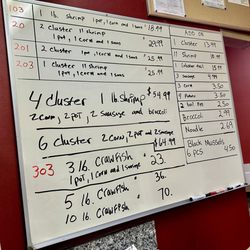 103 1 lb. shrimp
1 pot, 1 corn and 1 saus 18.99
20 2 cluster 1 lb shrimp
1 pot, 1 corn 29.99
201 2 cluster
1 pot, 1 corn and 1 saus 25.99
203 1 cluster 11 shrimp
1 pot, 1 corn and 1 saus 25.99
4 cluster 1 lb shrimp $54.99
2 corn, 2 pot, 2 sausage and broccoli
6 cluster 2 corn, 2 pot and 2 sausage
$64.99
303 3 lb. crawfish 23.
1 pot, 1 corn and 1 sausage
5 lb. crawfish 36.
10 lb. crawfish 70.
ADD ON
1 Cluster 13.99
Shrimp
3 Sausage 4.99
3 Corn 3.50
4 Potato 3.50
2 boil egg 2.50
Broccoli 2.69
Noodle 2.69
Black Mussels
6 pcs 4.50